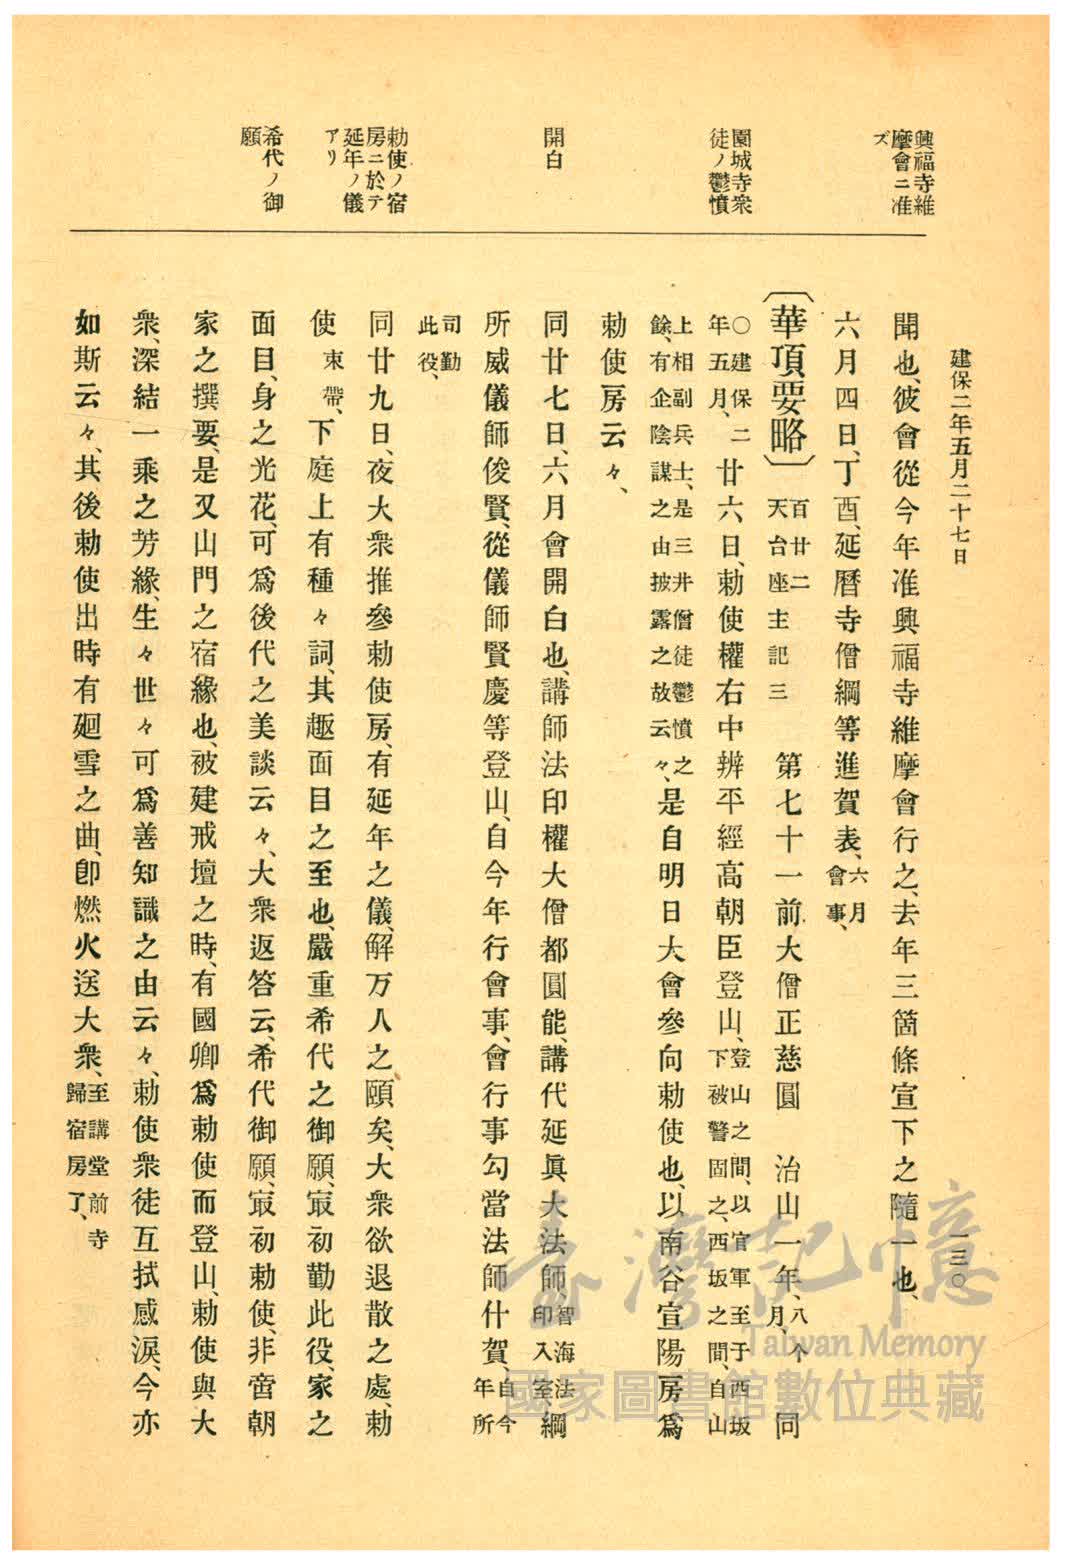 建保二年五月二十七日
一三〇
興福寺維
摩會ニ准
ズ
園城寺衆
徒ノ鬱憤
開白
勅使ノ宿
房ニ於テ
延年ノ儀
アリ
希代ノ御
願
聞也、彼會從今年准興福寺維摩會行之、去年三箇條宣下之隨一也、
六月四日、丁酉、延曆寺僧綱等進賀表、六月會事、
〔華頂要略〕百廿二天台座主記三 第七十一前大僧正慈圓 治山一年、八个月、同
〇建保二年五月、廿六日、勅使權右中辨平經高朝臣登山、登山之間、以官軍至于西坂下被警固之、西坂之間、自山
上相副兵士、是三井僧徒鬱憤之餘、有企陰謀之由披露之故云々、是自明日大會參向勅使也、以南谷宣陽房爲
勅使房云々、
同廿七日、六月會開白也、講師法印權大僧都圓能、講代延眞、大法師、智海法印入室、綱
所威儀師俊賢、從儀師賢慶等登山、自今年行會事、會行事勾當法師什賀、自今年所
司勤此役、
同廿九日、夜大衆推參勅使房、有延年之儀、解万人之頤矣、大衆欲退散之處、勅
使束帶、下庭上有種々詞、其趣面目之至也、嚴重希代之御願、㝡初勤此役、家之
面目、身之光花、可爲後代之美談云々、大衆返答云、希代御願、㝡初勅使、非啻朝
家之撰要、是又山門之宿緣也、被建戒壇之時、有國卿爲勅使而登山、勅使與大
衆、深結一乘之芳緣、生々世々可爲善知識之由云々、勅使衆徒互拭感淚、今亦
如斯云々、其後勅使出時有廻雪之曲、卽燃火送大衆、至講堂前寺歸宿房了、
臺灣記憶
Taiwan Memory
國家圖書館數位典藏